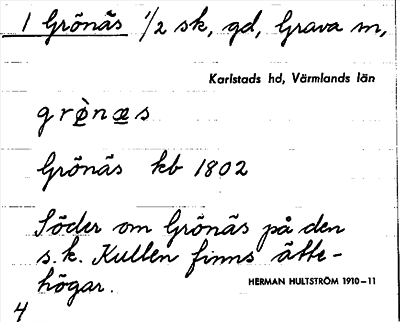 1 Grönäs 1/2 sk, gd, Grava sn,
Karlstads hd, Värmlands län
grö̀næs
Grönäs kb 1802
Söder om Grönäs på den
s.k. Kullen finns ätte-
högar.
HERMAN HULTSTRÖM 1910–11
4